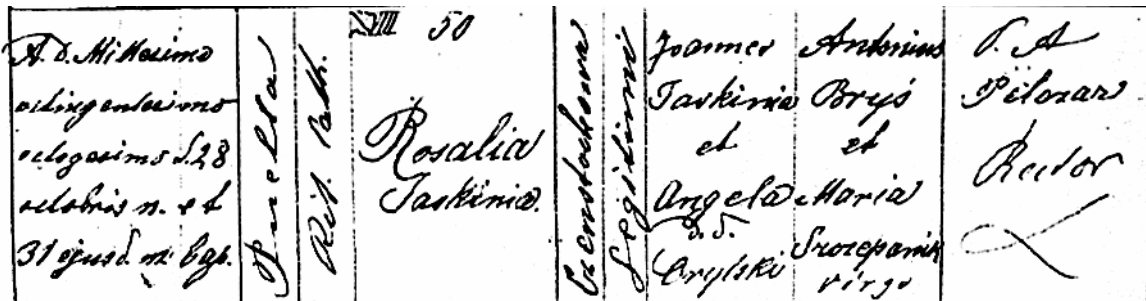 XVIII 50
A. D. Millesimo
octingentesimo
octogesimo d. 28
octobris n. et
31 ejusd. m. bap.
Puella
Rit. Cath.
Rosalia
Jaskinia.
Czenstochova
Legitimi
Joannes
Jaskinia
et
Angela
d. d.
Brylski
Antonius
Bryś
et
Maria
Szczepanik
virgo
P. A
Rector